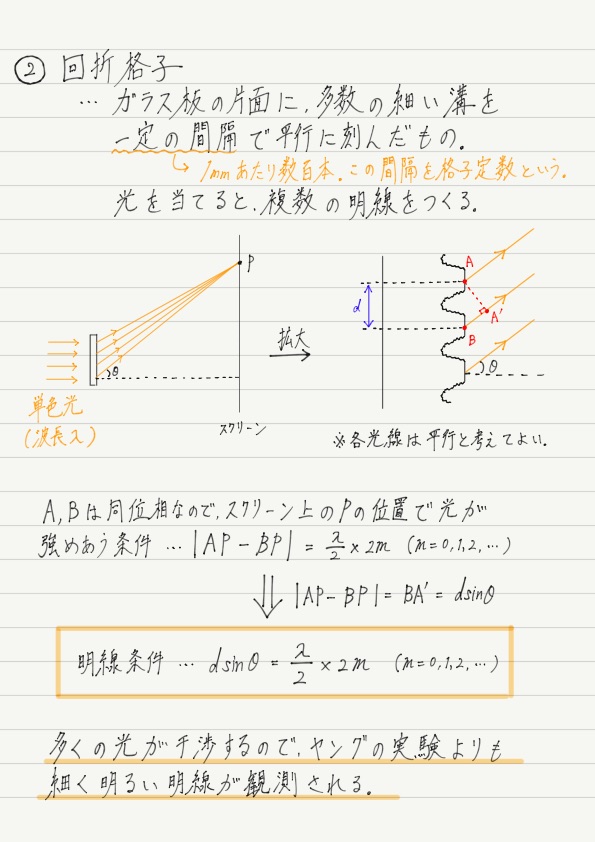 ② 回折格子
… ガラス板の片面に、多数の細い溝を
一定の間隔で平行に刻んだもの。
1mmあたり数百本。この間隔を格子定数という。
光を当てると、複数の明線をつくる。
P
θ
単色光
(波長λ)
スクリーン
拡大
A
d
A'
B
θ
※各光線は平行と考えてよい。
A, Bは同位相なので、スクリーン上のPの位置で光が
強めあう条件 … |AP - BP| = λ/2 × 2m (m = 0, 1, 2, …)
|AP - BP| = BA' = dsinθ
明線条件 … dsinθ = λ/2 × 2m (m = 0, 1, 2, …)
多くの光が干渉するので、ヤングの実験よりも
細く明るい明線が観測される。